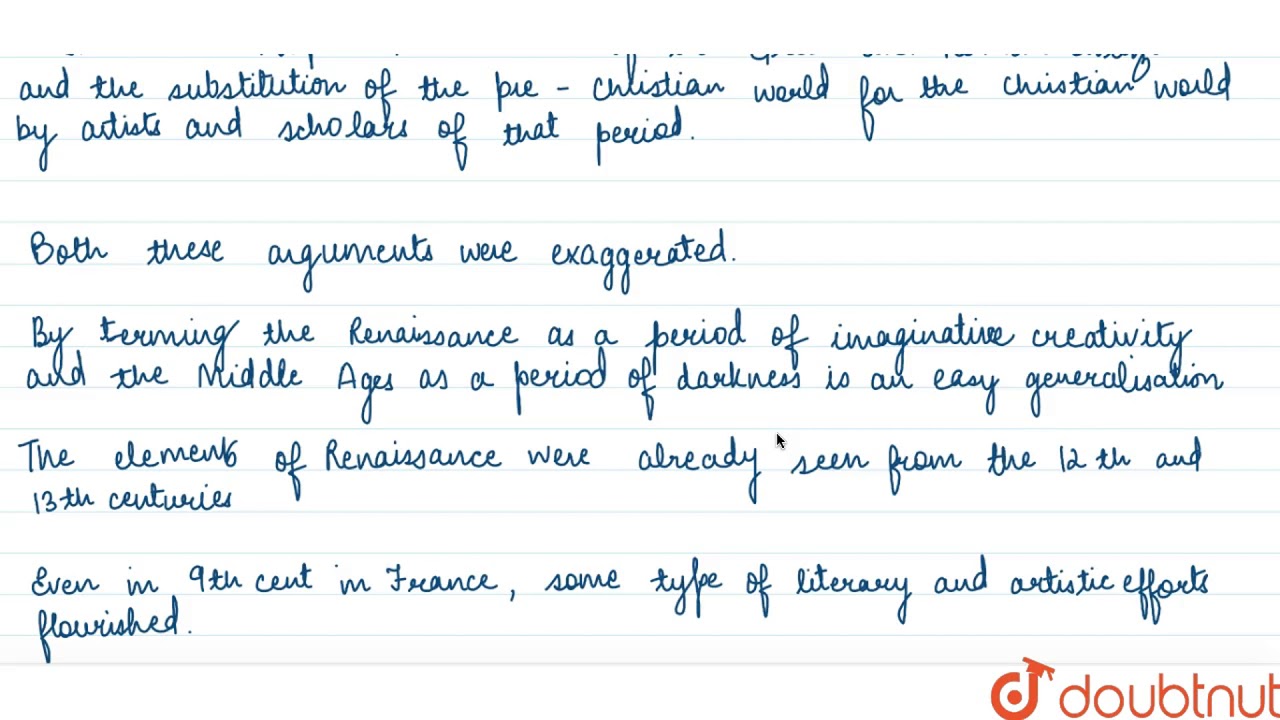 and the substitution of the pre - christian world for the christian world
by artists and scholars of that period.
Both these arguments were exaggerated.
By terming the Renaissance as a period of imaginative creativity
and the Middle Ages as a period of darkness is an easy generalisation
The elements of Renaissance were already seen from the 12 th and
13th centuries
Even in 9th cent in France, some type of literary and artistic efforts
flourished.
doubtnut